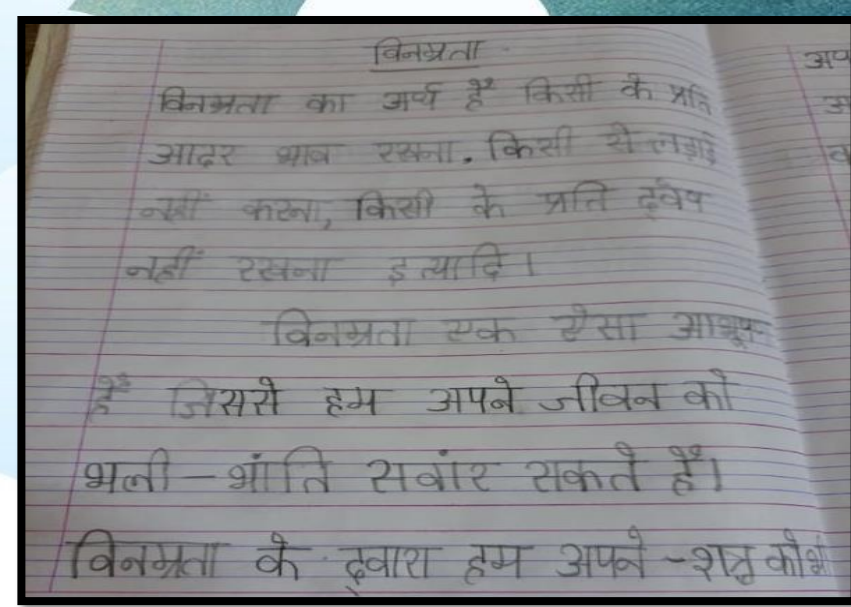 विनम्रता
विनम्रता का अर्थ है किसी के प्रति
आदर भाव रखना. किसी से लड़ाई
नहीं करना, किसी के प्रति द्वेष
नहीं रखना इत्यादि।
विनम्रता एक ऐसा आभूष
हैं जिससे हम अपने जीवन को
भली-भांति सवांर सकते हैं।
विनम्रता के द्वारा हम अपने शत्रु को भी